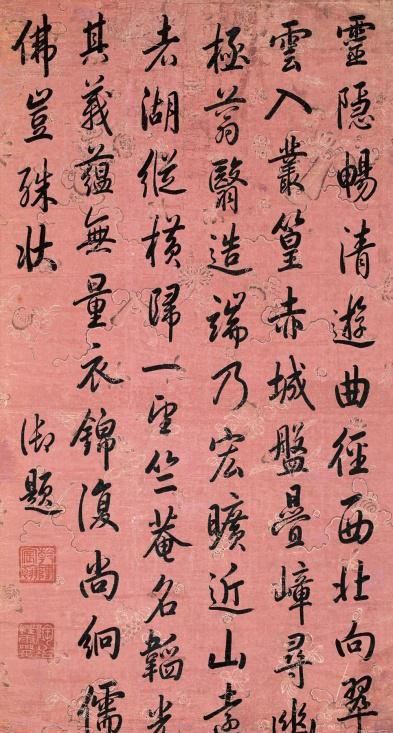 靈隱暢清遊曲徑西北向翠
雲入叢篁赤城盤疊嶂尋幽
極蓊翳造端乃宏曠近山
湖縱橫歸一望竺菴名韜光
其義蘊無量衣錦復尚絅儒
佛豈殊狀
御題